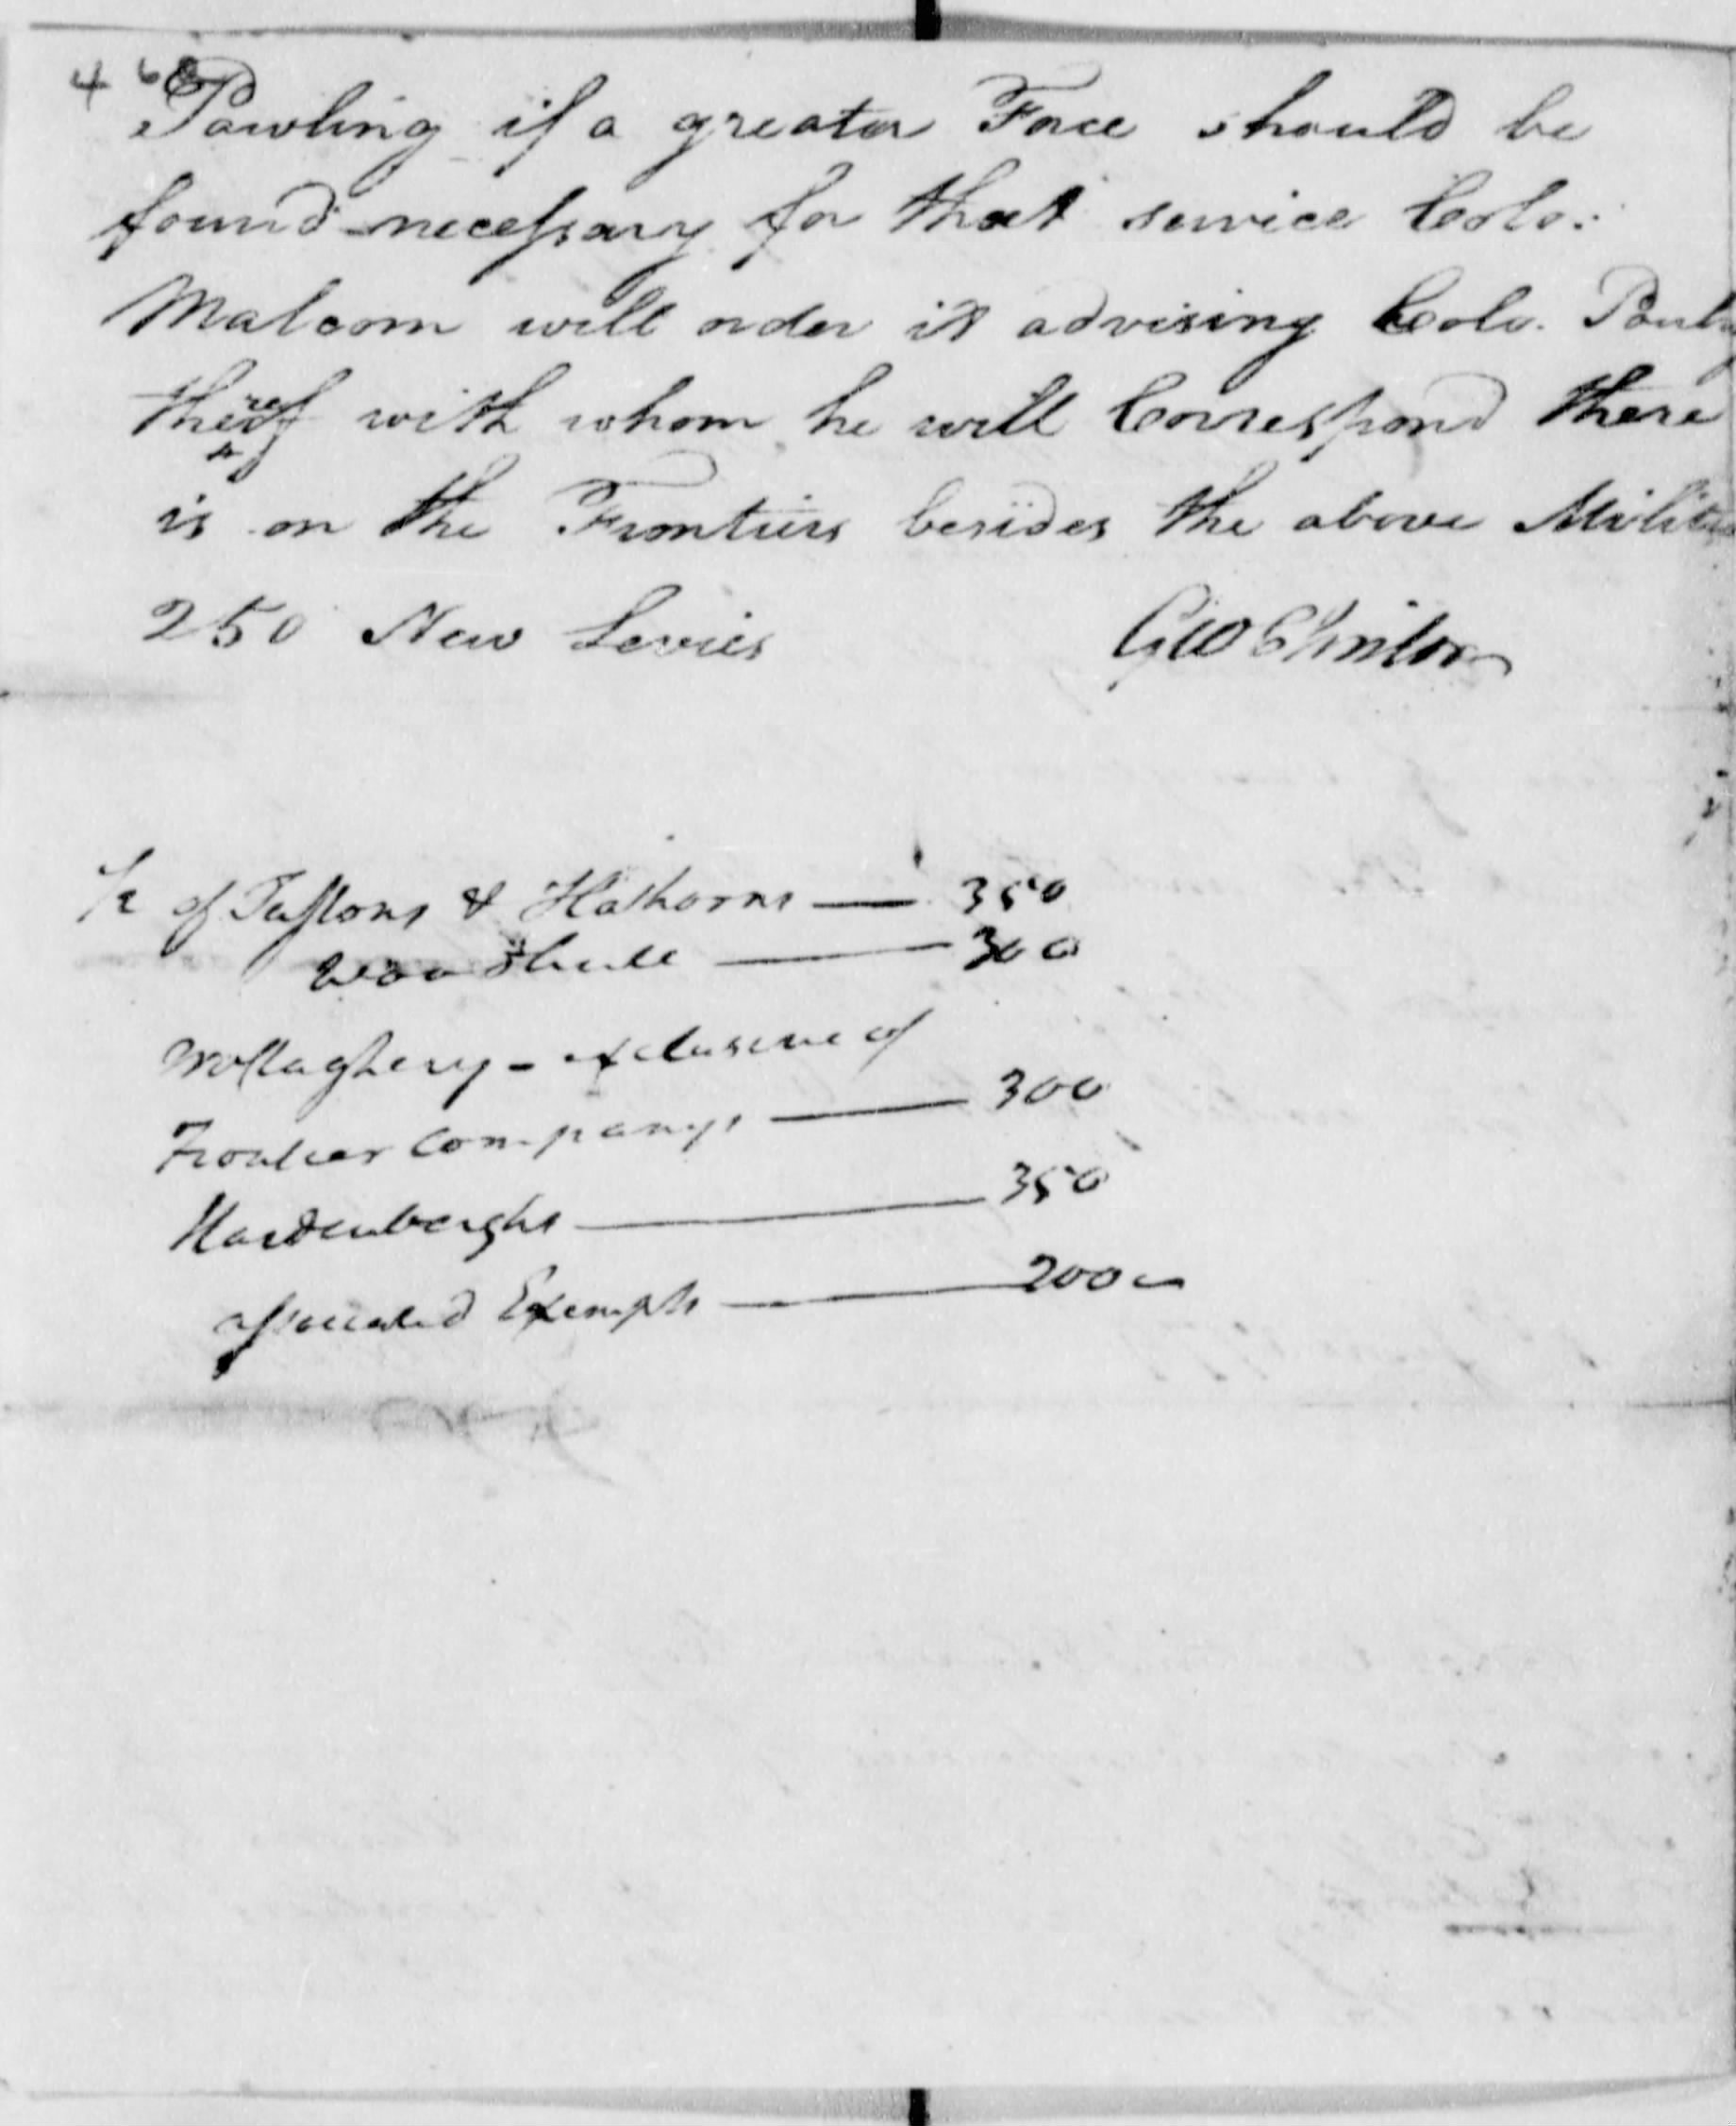 468
Pawling if a greater Force should be
found necessary for that service Colo:
Malcom will order it advising Colo. Pawling
thereof with whom he will Correspond there
is on the Frontiers besides the above Militia
250 New Levies Geo Clinton
1/2 of Tustons & Hathorns — 350
Woodhull — 300
McClaghery - exclusive of
Frontier Companys — 300
Hardenberghs — 350
associated Exempts — 200